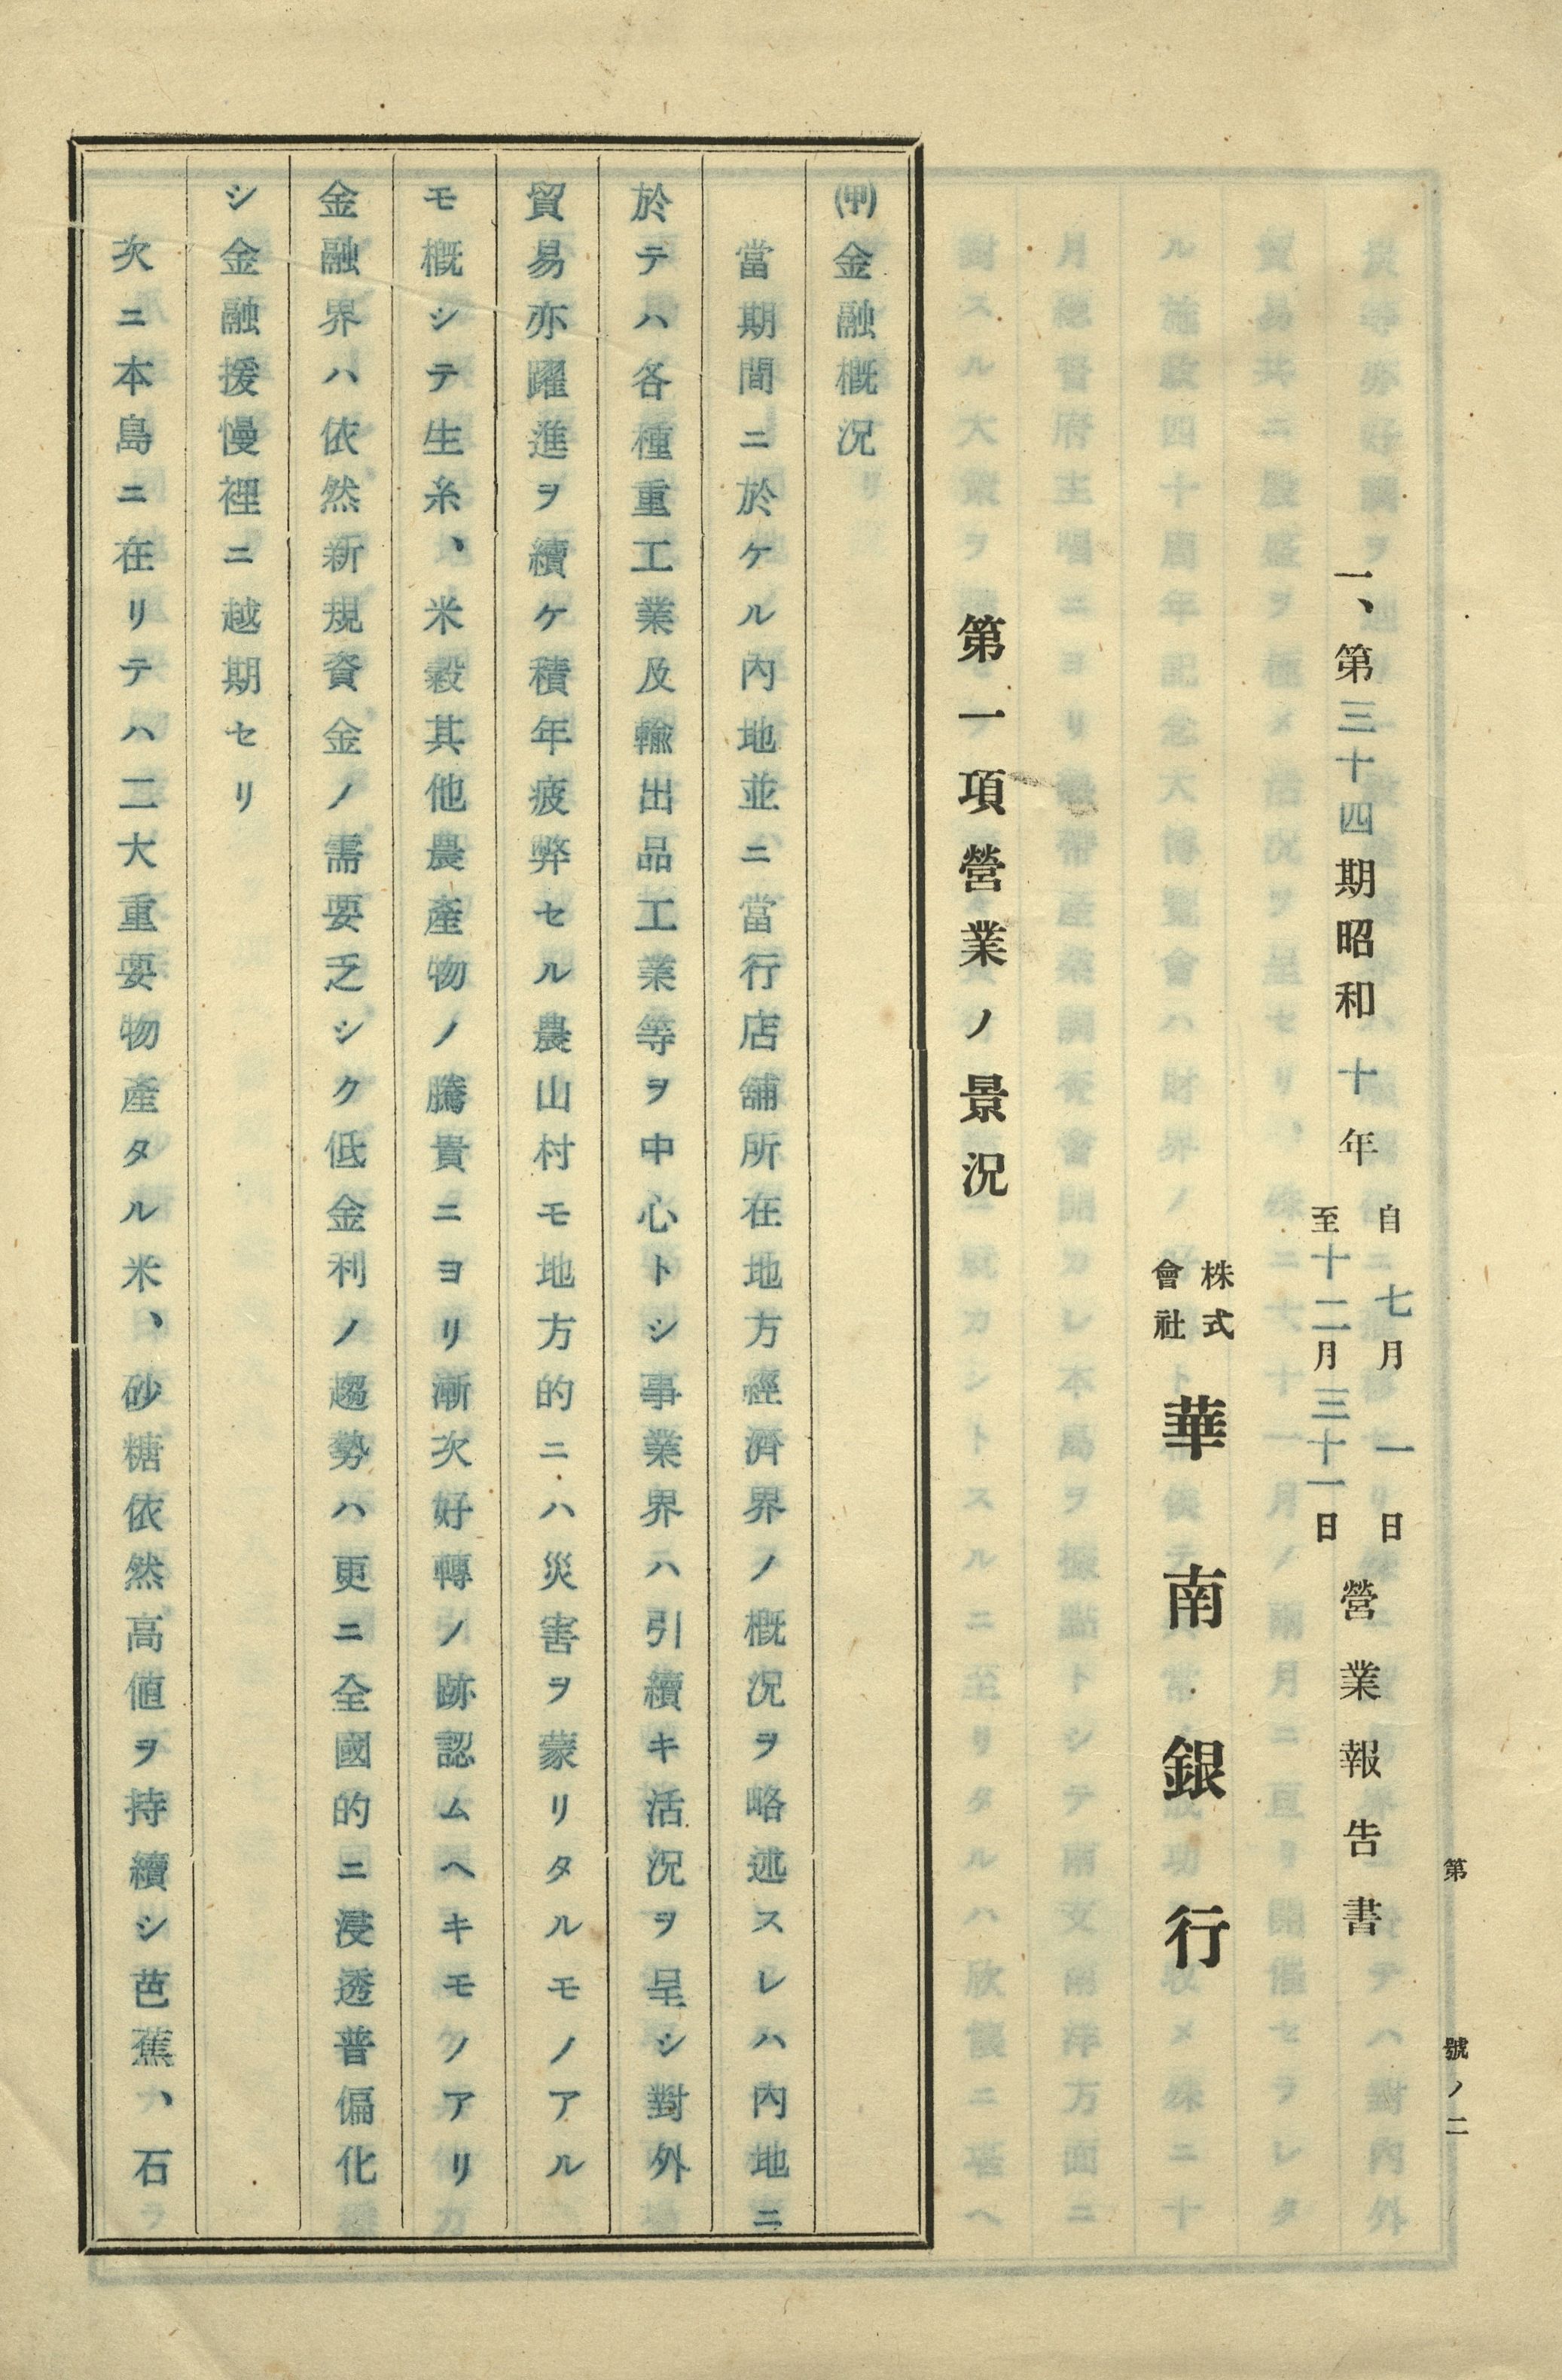 第　　號ノ二
一、第三十四期昭和十年自七月一日至十二月三十一日營業報告書
株式會社華南銀行
第一項營業ノ景況
(甲)金融概況
當期間ニ於ケル內地並ニ當行店舖所在地方經濟界ノ概況ヲ略述スレハ內地ニ
於テハ各種重工業及輸出品工業等ヲ中心トシ事業界ハ引續キ活況ヲ呈シ對外
貿易亦躍進ヲ續ケ積年疲弊セル農山村モ地方的ニハ災害ヲ蒙リタルモノアル
モ概シテ生糸、米穀其他農產物ノ騰貴ニヨリ漸次好轉ノ跡認ムヘキモノアリ
金融界ハ依然新規資金ノ需要乏シク低金利ノ趨勢ハ更ニ全國的ニ浸透普偏化
シ金融援慢裡ニ越期セリ
次ニ本島ニ在リテハ二大重要物產タル米、砂糖依然高値ヲ持續シ芭蕉、石